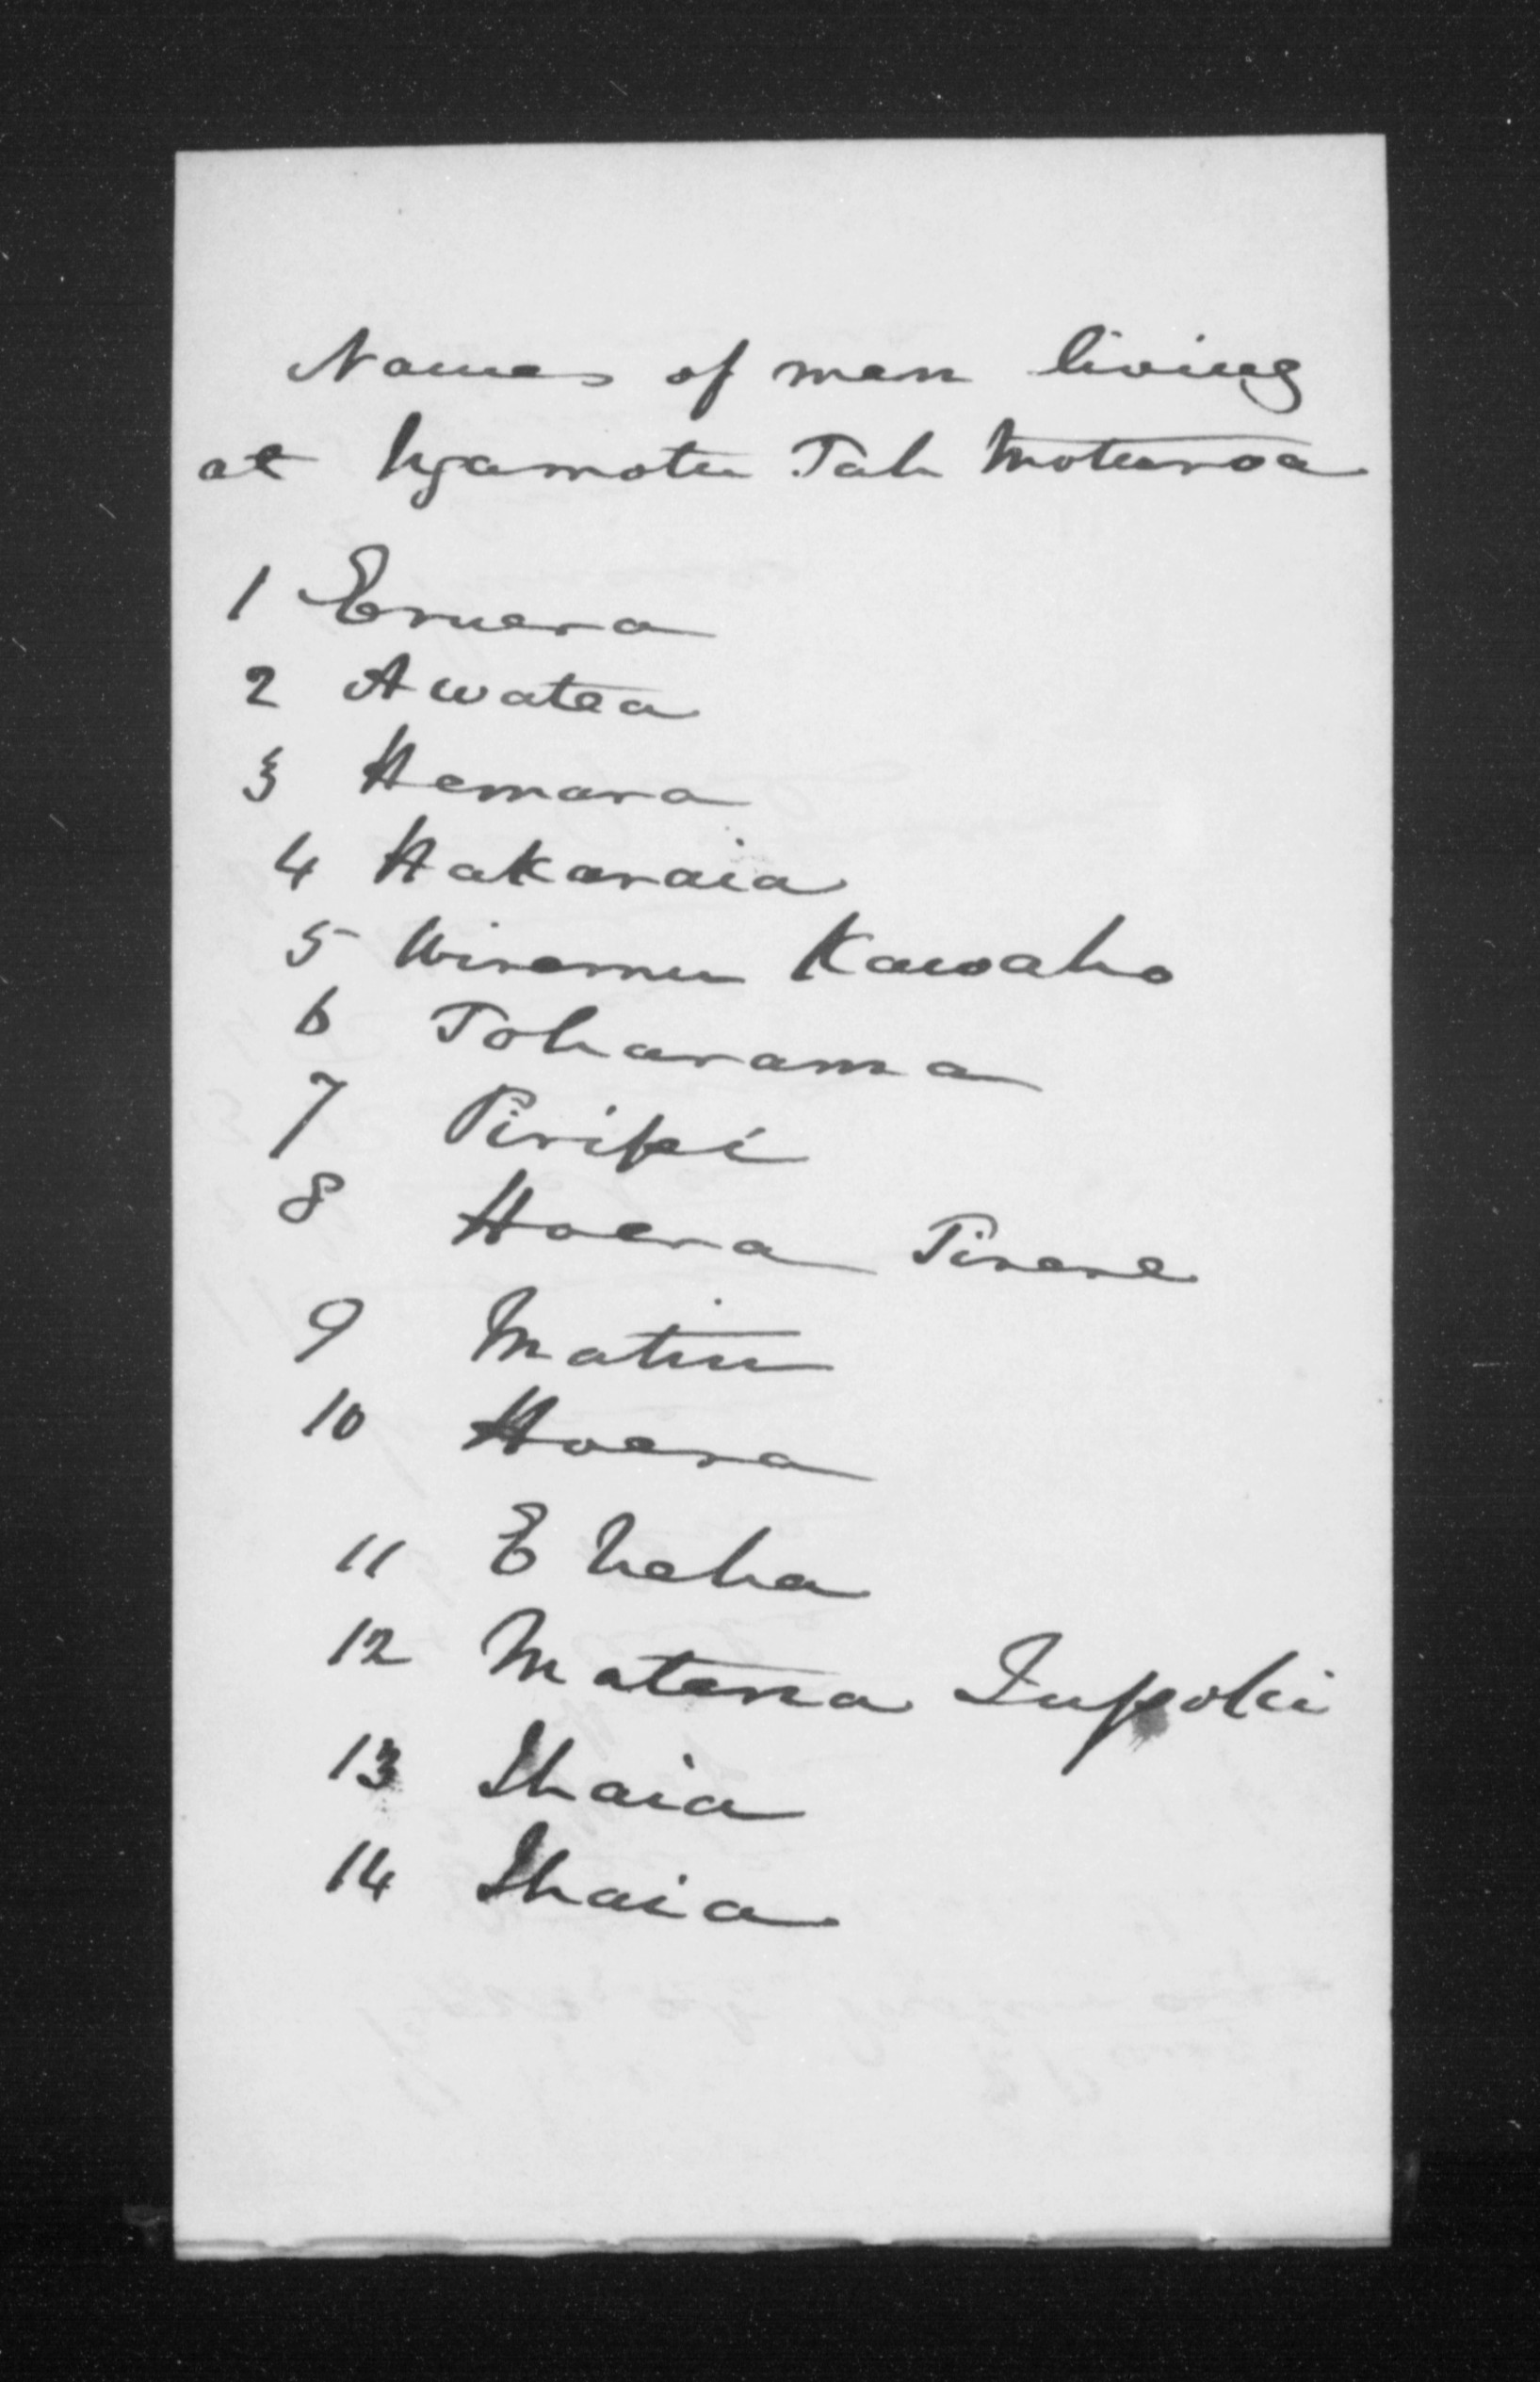 Names of men living
at Ngamotu Pah Moturoa
1 Eruera
2 Awatea
3 Hemara
4 Hakaraia
5 Wiremu Kawaho
6 Toharama
7 Piripi
8 Hoera Pirere
9 Matiu
10 Hoera
11 E Neha
12 Matena Tupoki
13 Ihaia
14 Ihaia